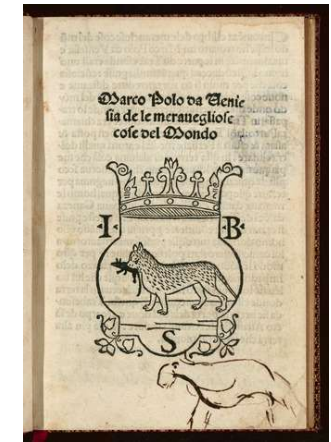 Marco Polo da Venie
sia de le merauegliose
cose del Mondo
I. B.
S